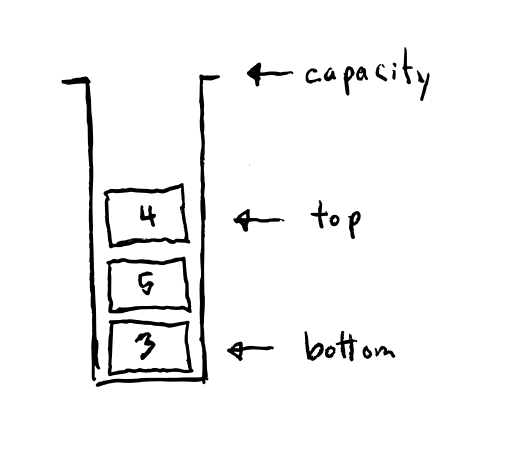 capacity
4
top
5
3
bottom